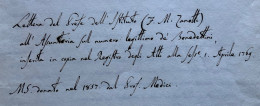 Lettera del Presid. dell'Istituto (F. M. Zanotti)
all'Assunteria sul numero legittimo dei Benedettini,
inserita in copia nel Registro degli Atti alla Sess. 1. Aprile 1769
MS. donato nel 1857 dal Prof. Medici.